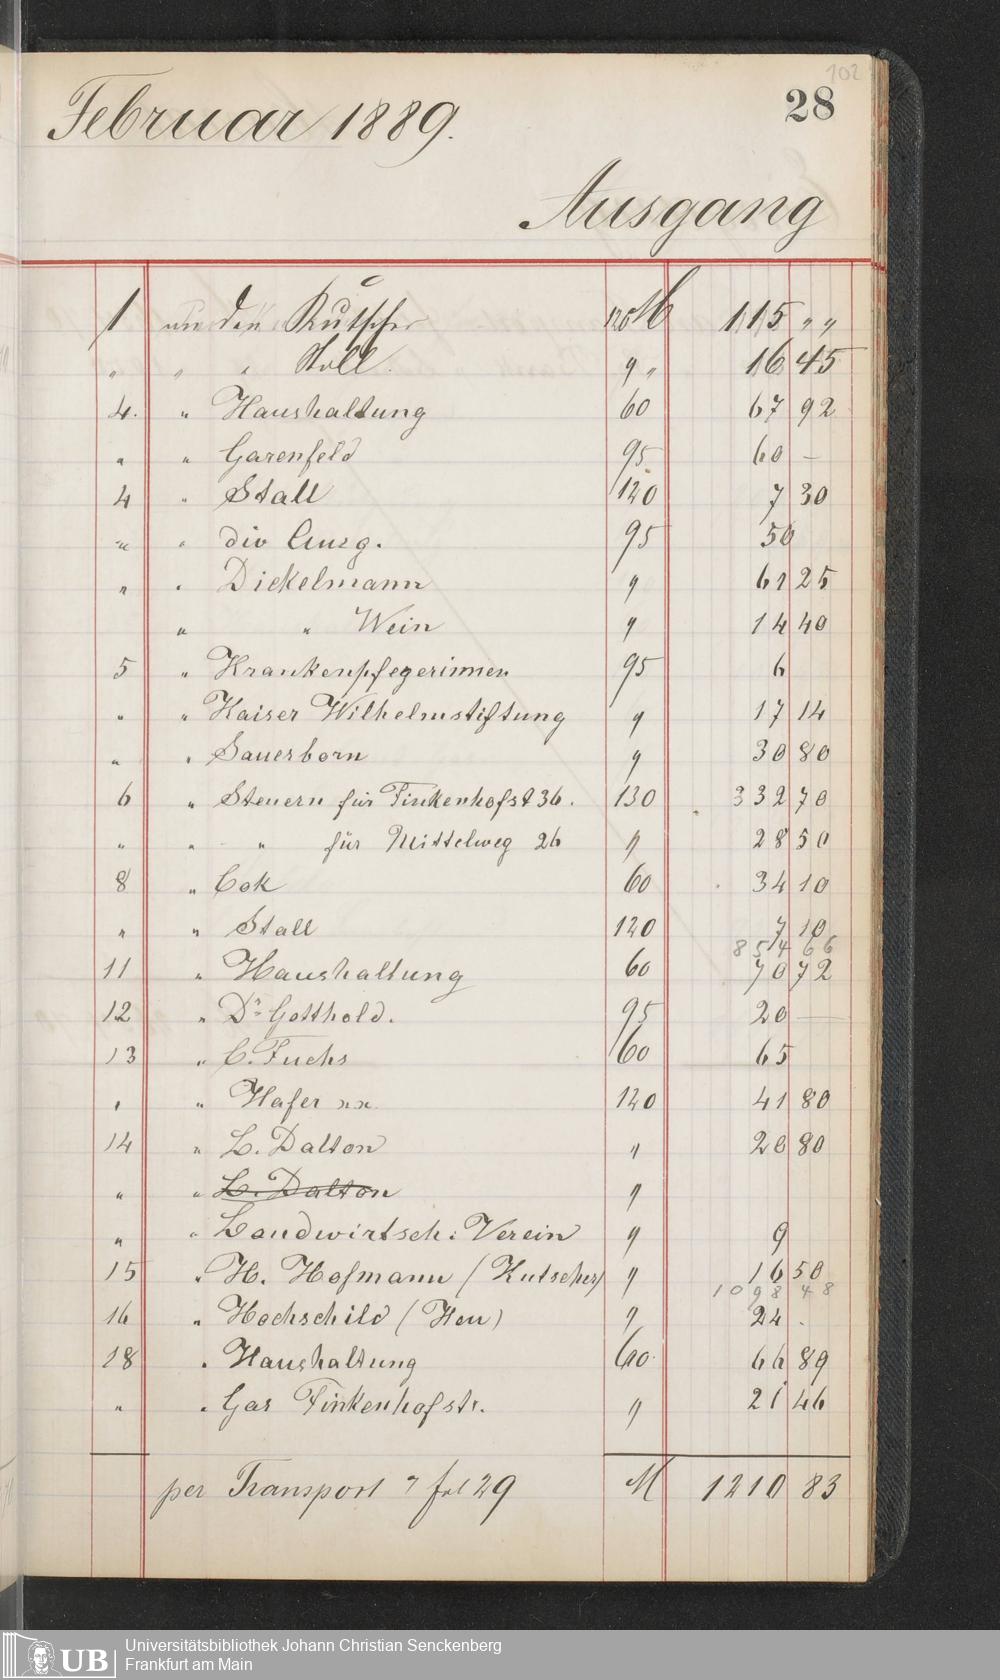 102
28
Februar 1889.
Ausgang
1 an den Kutscher 120 M 115 " "
" " " Stall. " " 16 45
4. " Haushaltung 60 67 92
" " Garenfeld 95 60 —
4 " Stall 120 7 30
" " div Ausg. 95 50
" " Dickelmann " 61 25
" " Wein " 14 40
5 " Krankenpfegerinnen 95 6
" " Kaiser Wilhelmstiftung " 17 14
" " Sauerborn " 30 80
6 " Steuern für Finkenhofst 36. 130 332 70
" " " für Mittelweg 26 " 28 50
8 " Cok 60 34 10
" " Stall 120 7 10
854 66
11 " Haushaltung 60 70 72
12 " Dr Gotthold. 95 20 —
13 " C. Fuchs 60 65
" " Hafer 120 41 80
14 " L. Dalton " 20 80
" " L. Dalton "
" " Landwirtsch: Verein " 9
15 " H. Hofmann (Kutscher) " 16 50
1098 48
16 " Hochschild (Heu) " 24 .
18 " Haushaltung 60. 66 89
" " Gas Finkenhofstr. " 21 46
per Transport fol 29 M 1210 83
Universitätsbibliothek Johann Christian Senckenberg
UB Frankfurt am Main